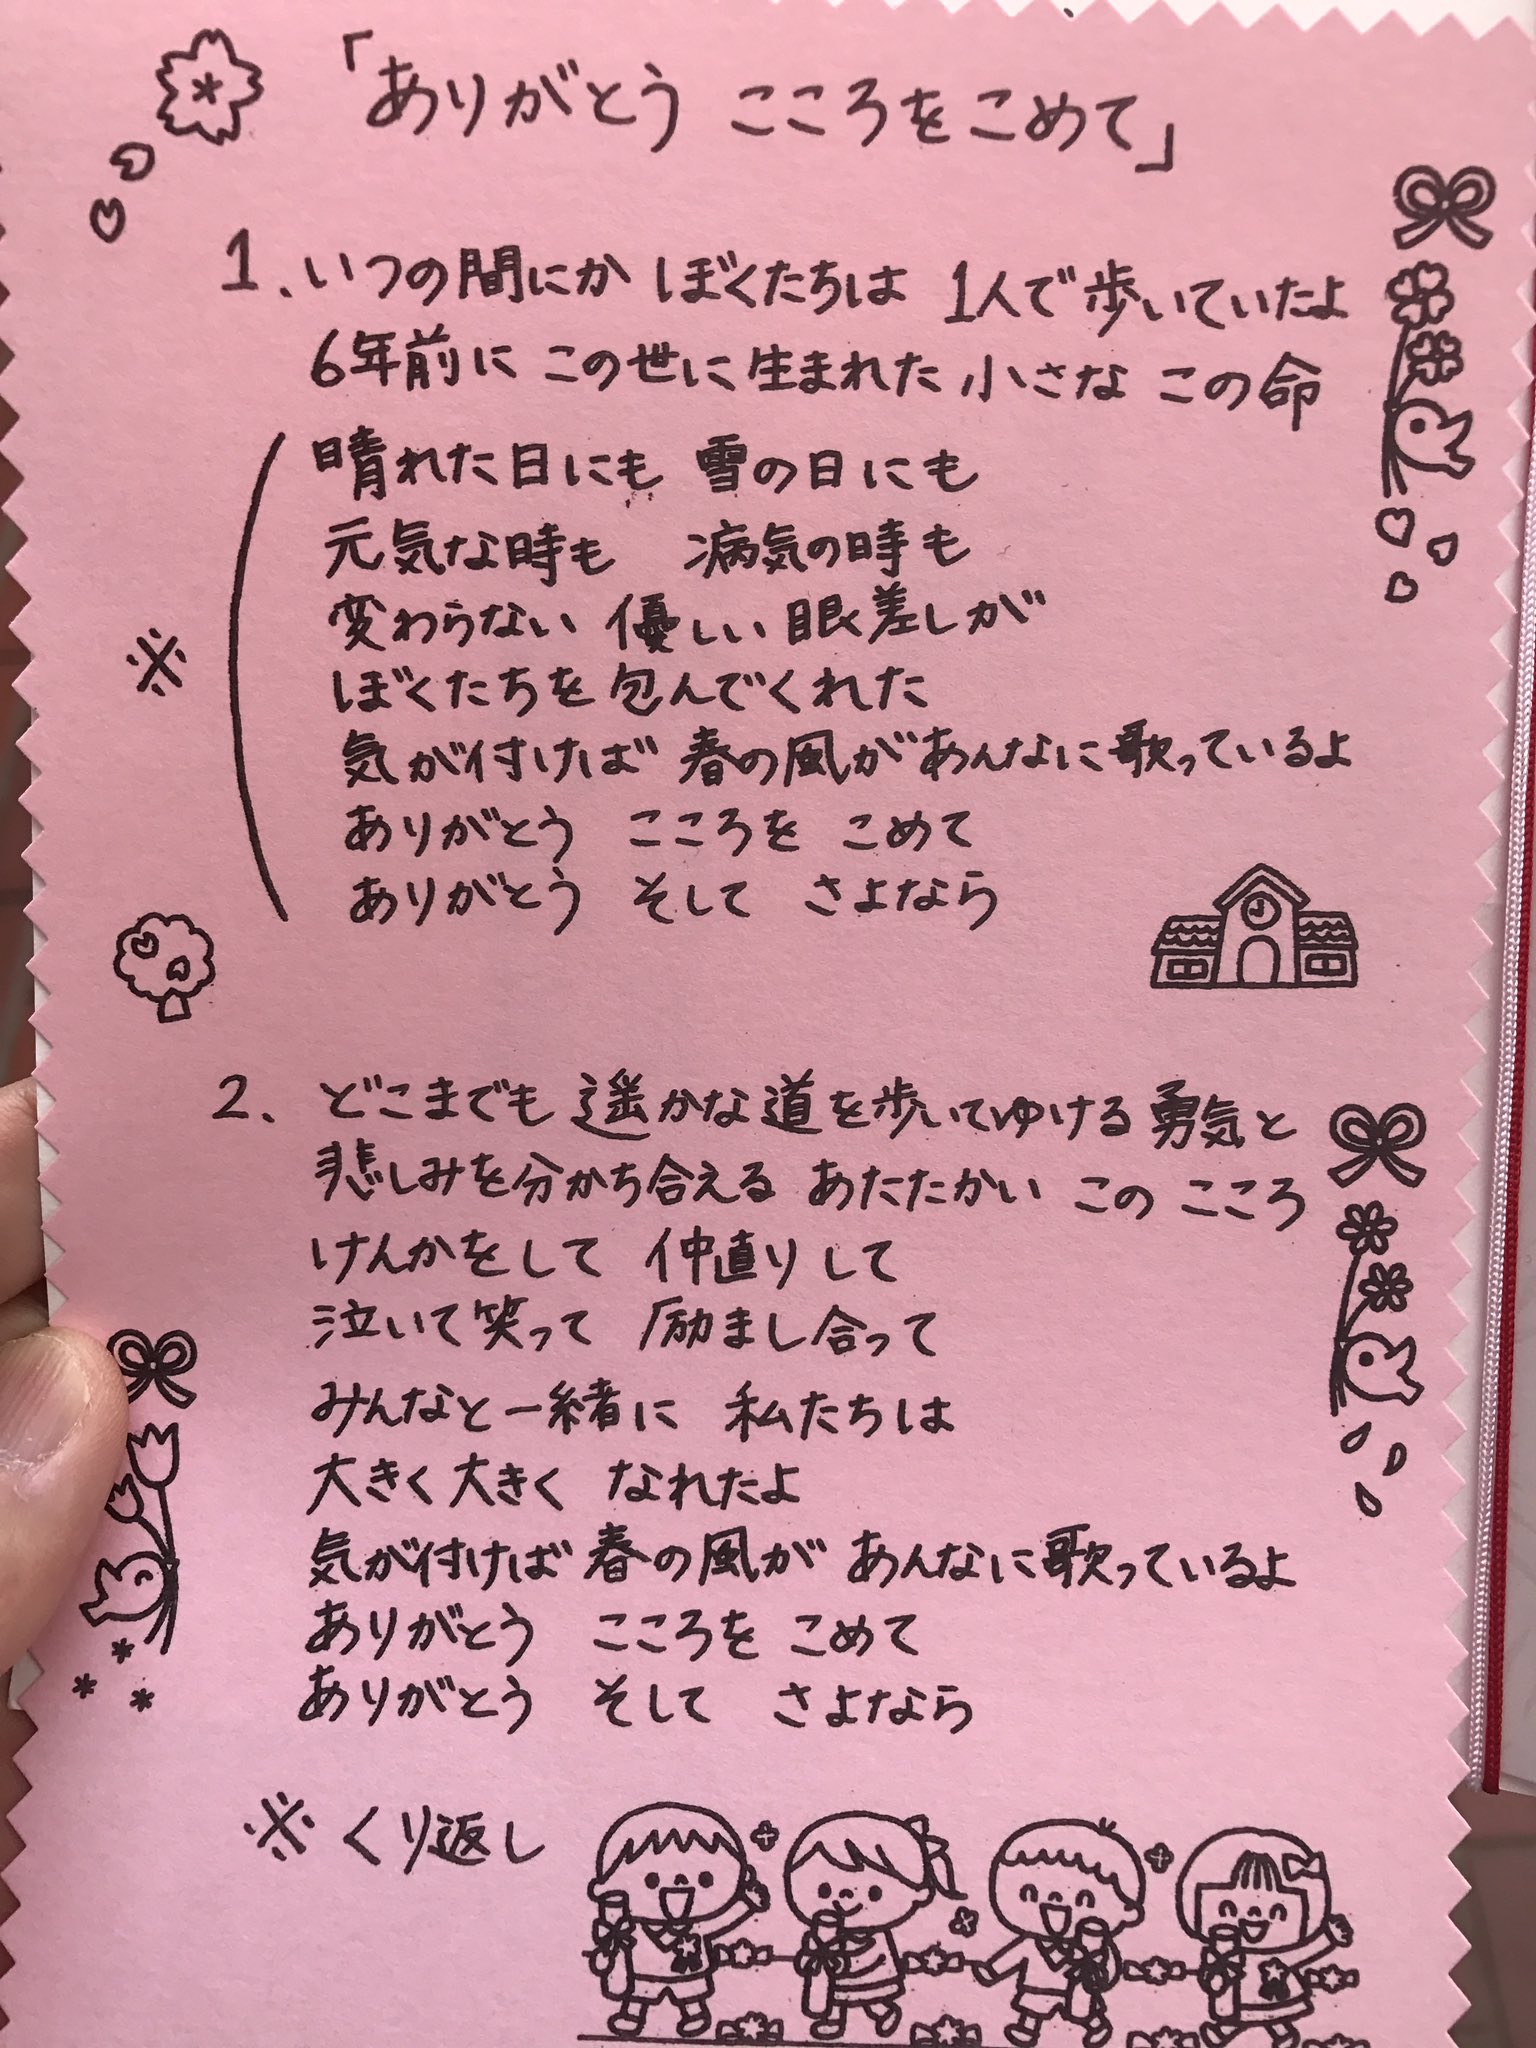 「ありがとう こころをこめて」
1、いつの間にか ぼくたちは 1人で歩いていたよ
6年前に この世に生まれた 小さな この命
晴れた日にも 雪の日にも
元気な時も 病気の時も
※ 変わらない 優しい 眼差しが
ぼくたちを包んでくれた
気が付けば 春の風が あんなに歌っているよ
ありがとう こころを こめて
ありがとう そして さよなら
2、どこまでも 遥かな道を歩いてゆける 勇気と
悲しみを分かち合える あたたかい この こころ
けんかをして 仲直りして
泣いて笑って 励まし合って
みんなと一緒に 私たちは
大きく大きく なれたよ
気が付けば 春の風が あんなに歌っているよ
ありがとう こころを こめて
ありがとう そして さよなら
※くり返し